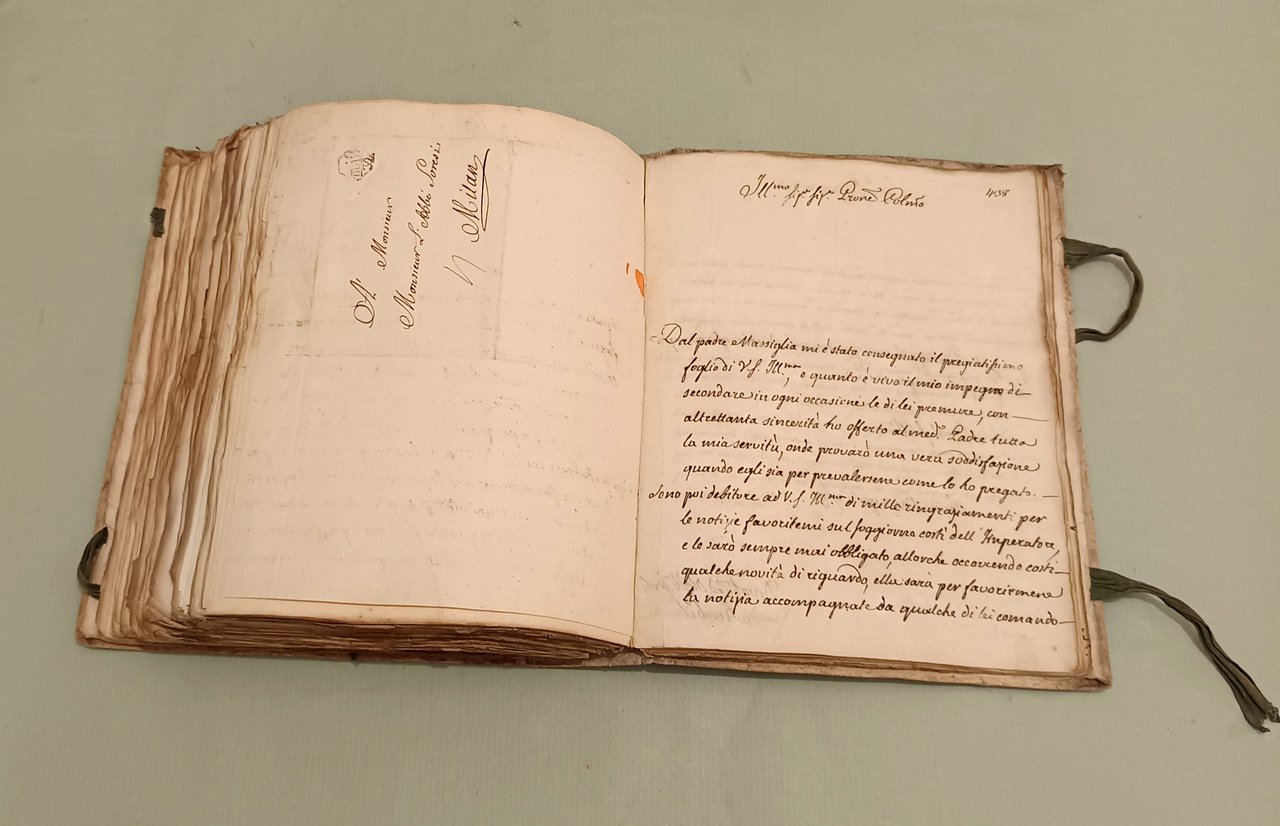 A' Monsieur
Monsieur L'Abbé Soresi
à Milan
438
Ill.mo Sig.r Sig.r Prone Colmo
Dal padre Massiglia mi è stato consegnato il pregiatissimo
foglio di V.S. Ill.ma, e quanto è vivo il mio impegno di
secondare in ogni occasione le di lei premure, con
altrettanta sincerità ho offerto al med.o Padre tutta
la mia servitù, onde provarò una vera soddisfazione
quando egli sia per prevalersene come lo ho pregato.
Sono poi debitore ad V.S. Ill.ma di mille ringraziamenti per
le notizie favoritemi sul soggiorno costì dell'Imperatore,
e le sarò sempre mai obbligato, allorche occorrendo costì
qualche novità di riguardo, ella sarà per favorirmene
la notizia accompagnata da qualche di lei comando